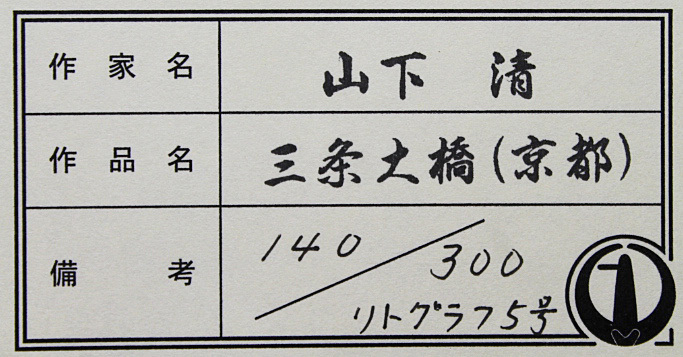 作家名 山下 清
作品名 三条大橋(京都)
備考 140/300
リトグラフ5号